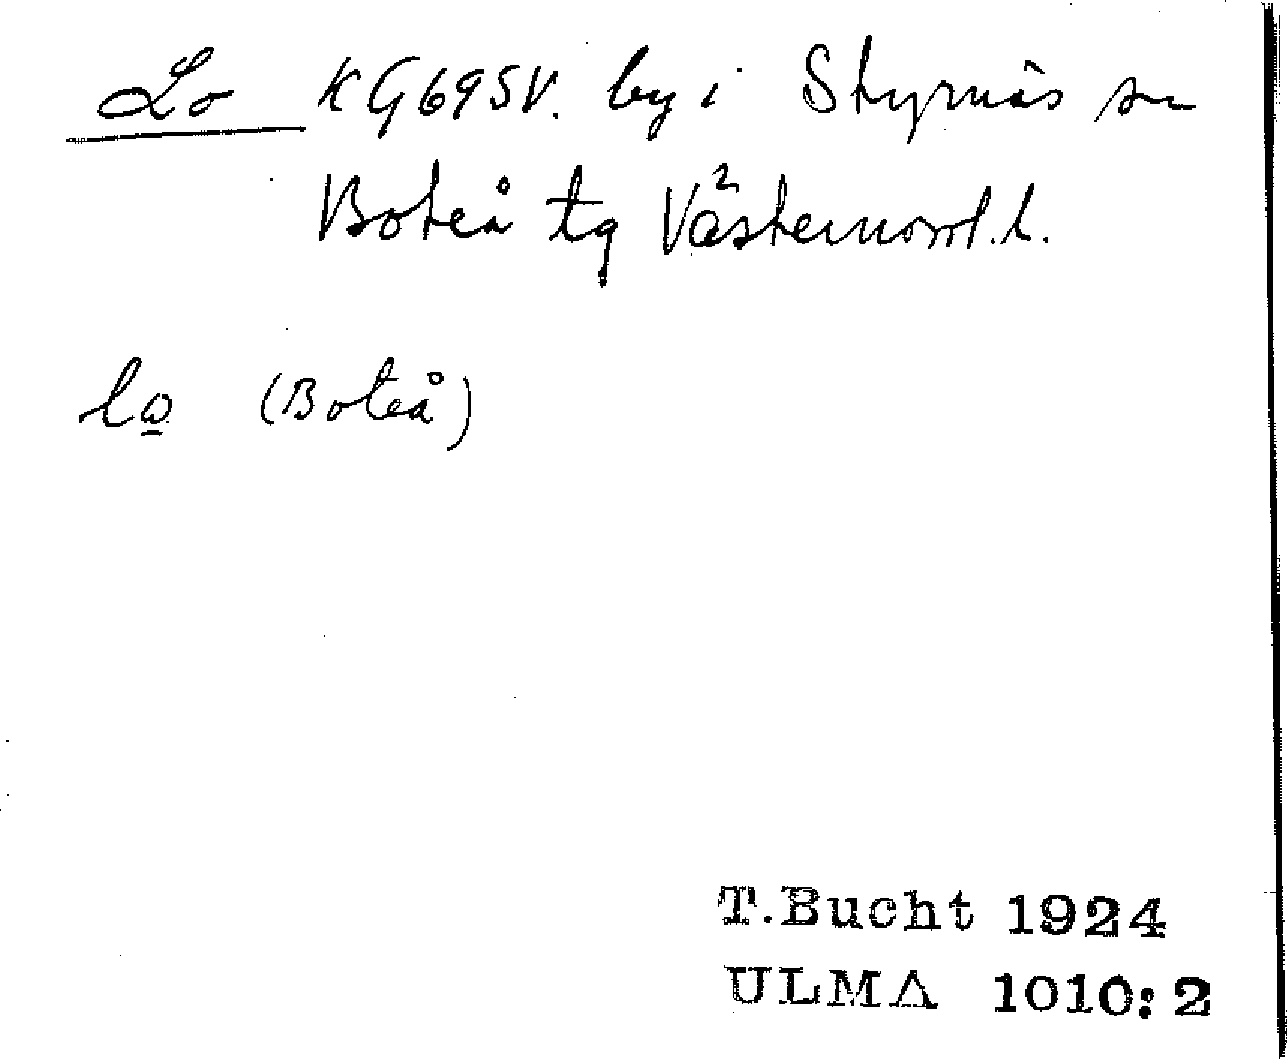 Lo KG695V. by i Styrnäs sn
Boteå tg Västernorrl. l.
lo (Boteå)
T.Bucht 1924
ULMA 1010:2